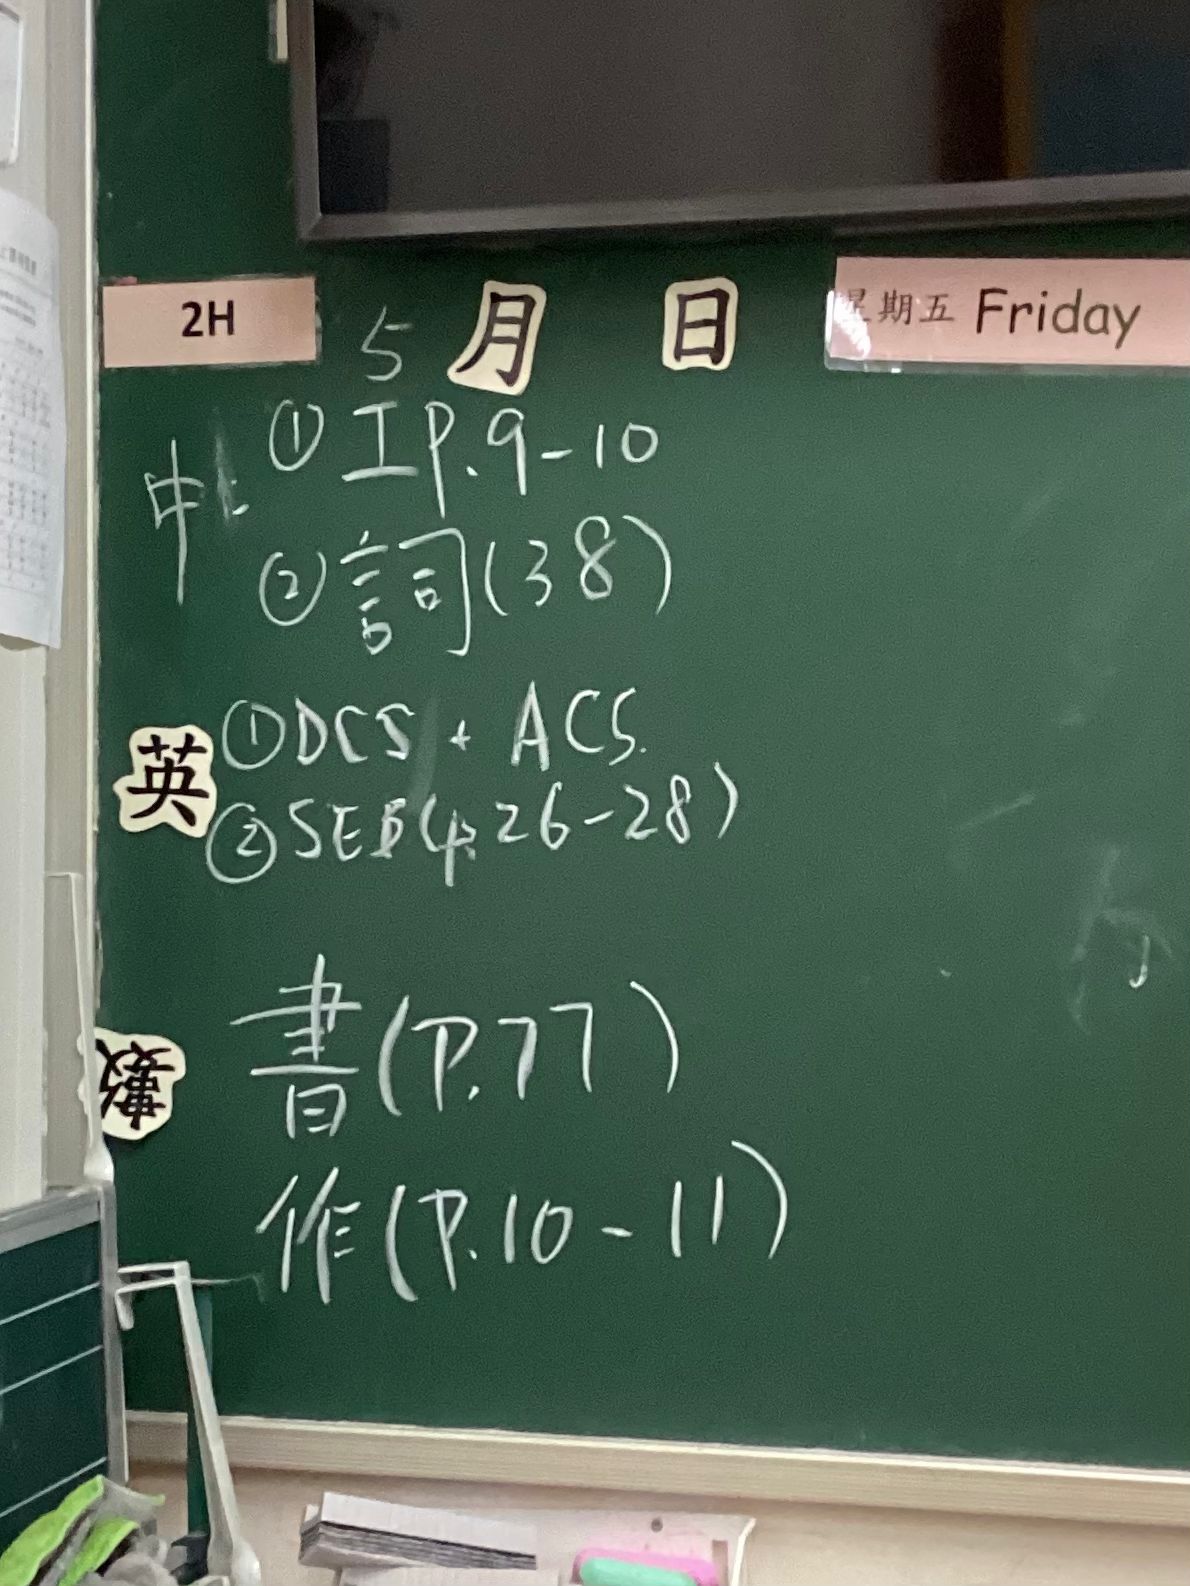 2H 5月 日 星期五 Friday
中: ① 工 P.9-10
② 詞(38)
英 ① DCS + ACS.
② SEB(p.26-28)
數 書(P.77)
作(P.10-11)